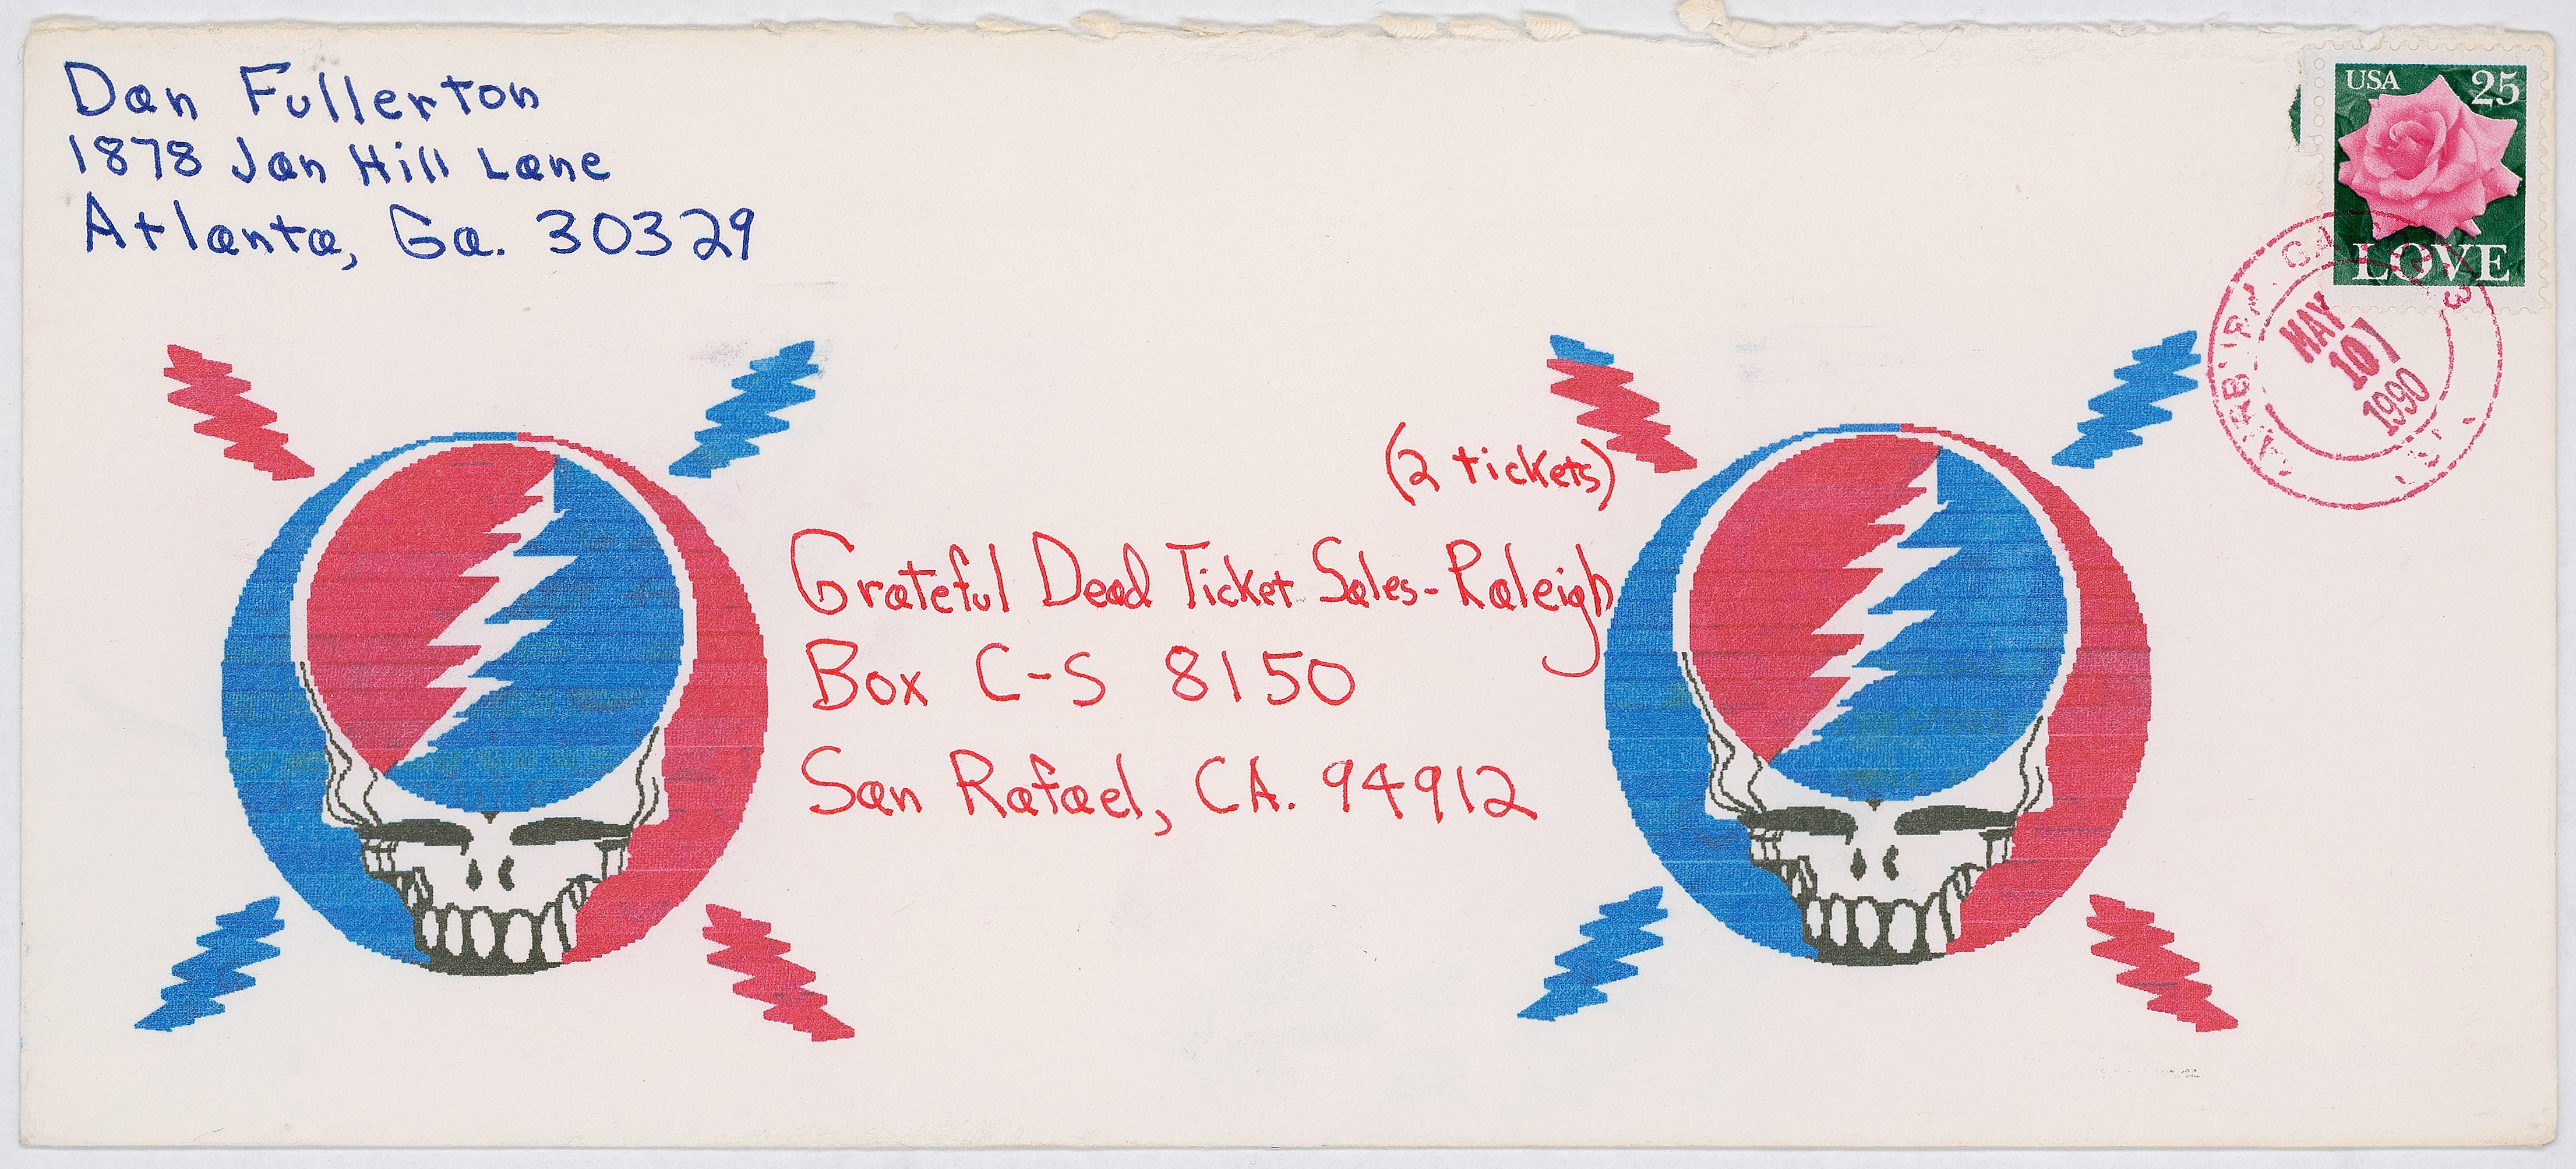 Dan Fullerton
1878 Jan Hill Lane
Atlanta, Ga. 30329
USA 25
LOVE
MAY
10
1990
(2 tickets)
Grateful Dead Ticket Sales-Raleigh
Box C-S 8150
San Rafael, CA. 94912